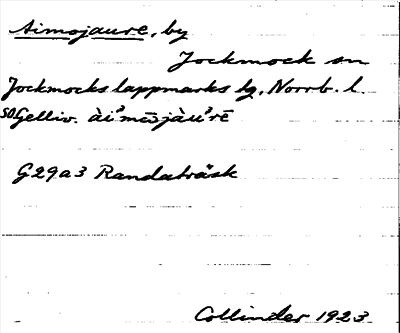 Aimojaure, by
Jockmock sn
Jockmocks lappmarks tg, Norrb. l.
SO Gelliv. ài²mo̅jàu²rē
G29a3 Randaträsk
Collinder 1923